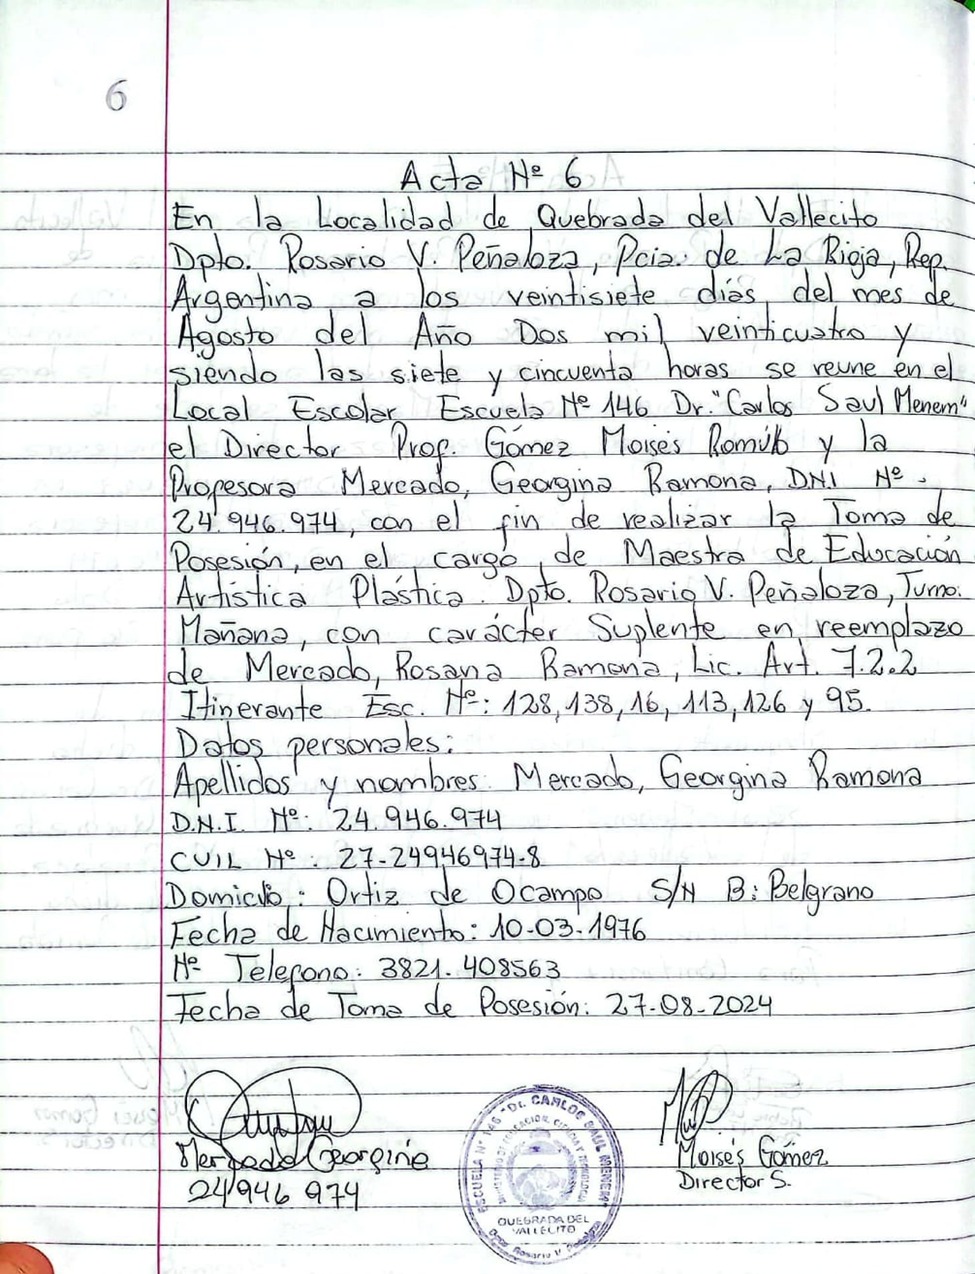 6
Acta Nº 6
En la Localidad de Quebrada del Vallecito
Dpto. Rosario V. Peñaloza, Pcia. de La Rioja, Rep.
Argentina a los veintisiete días del mes de
Agosto del Año Dos mil veinticuatro y
siendo las siete y cincuenta horas se reune en el
Local Escolar Escuela Nº 146 Dr. "Carlos Saul Menem"
el Director Prof. Gómez Moisés Romúlo y la
Profesora Mercado, Georgina Ramona, DNI Nº.
24.946.974, con el fin de realizar la Toma de
Posesión, en el cargo de Maestra de Educación
Artística Plástica. Dpto. Rosario V. Peñaloza, Turno:
Mañana, con carácter Suplente en reemplazo
de Mercado, Rosana Ramona, Lic. Art. 7.2.2
Itinerante Esc. Nº: 128, 138, 16, 113, 126 y 95.
Datos personales:
Apellidos y nombres. Mercado, Georgina Ramona
D.N.I. Nº: 24.946.974
CUIL Nº: 27-24946974-8
Domicilio: Ortiz de Ocampo S/N B: Belgrano
Fecha de Nacimiento: 10-03-1976
Nº Telefono: 3821-408563
Fecha de Toma de Posesión: 27-08-2024
Mercado Georgina
24946974
ESCUELA Nº 146 "Dr. CARLOS SAUL MENEM"
MINISTERIO DE EDUCACION, CIENCIA Y TECNOLOGIA
QUEBRADA DEL
VALLECITO
Dpto. Rosario V. Peñaloza
Moisés Gómez
Director S.